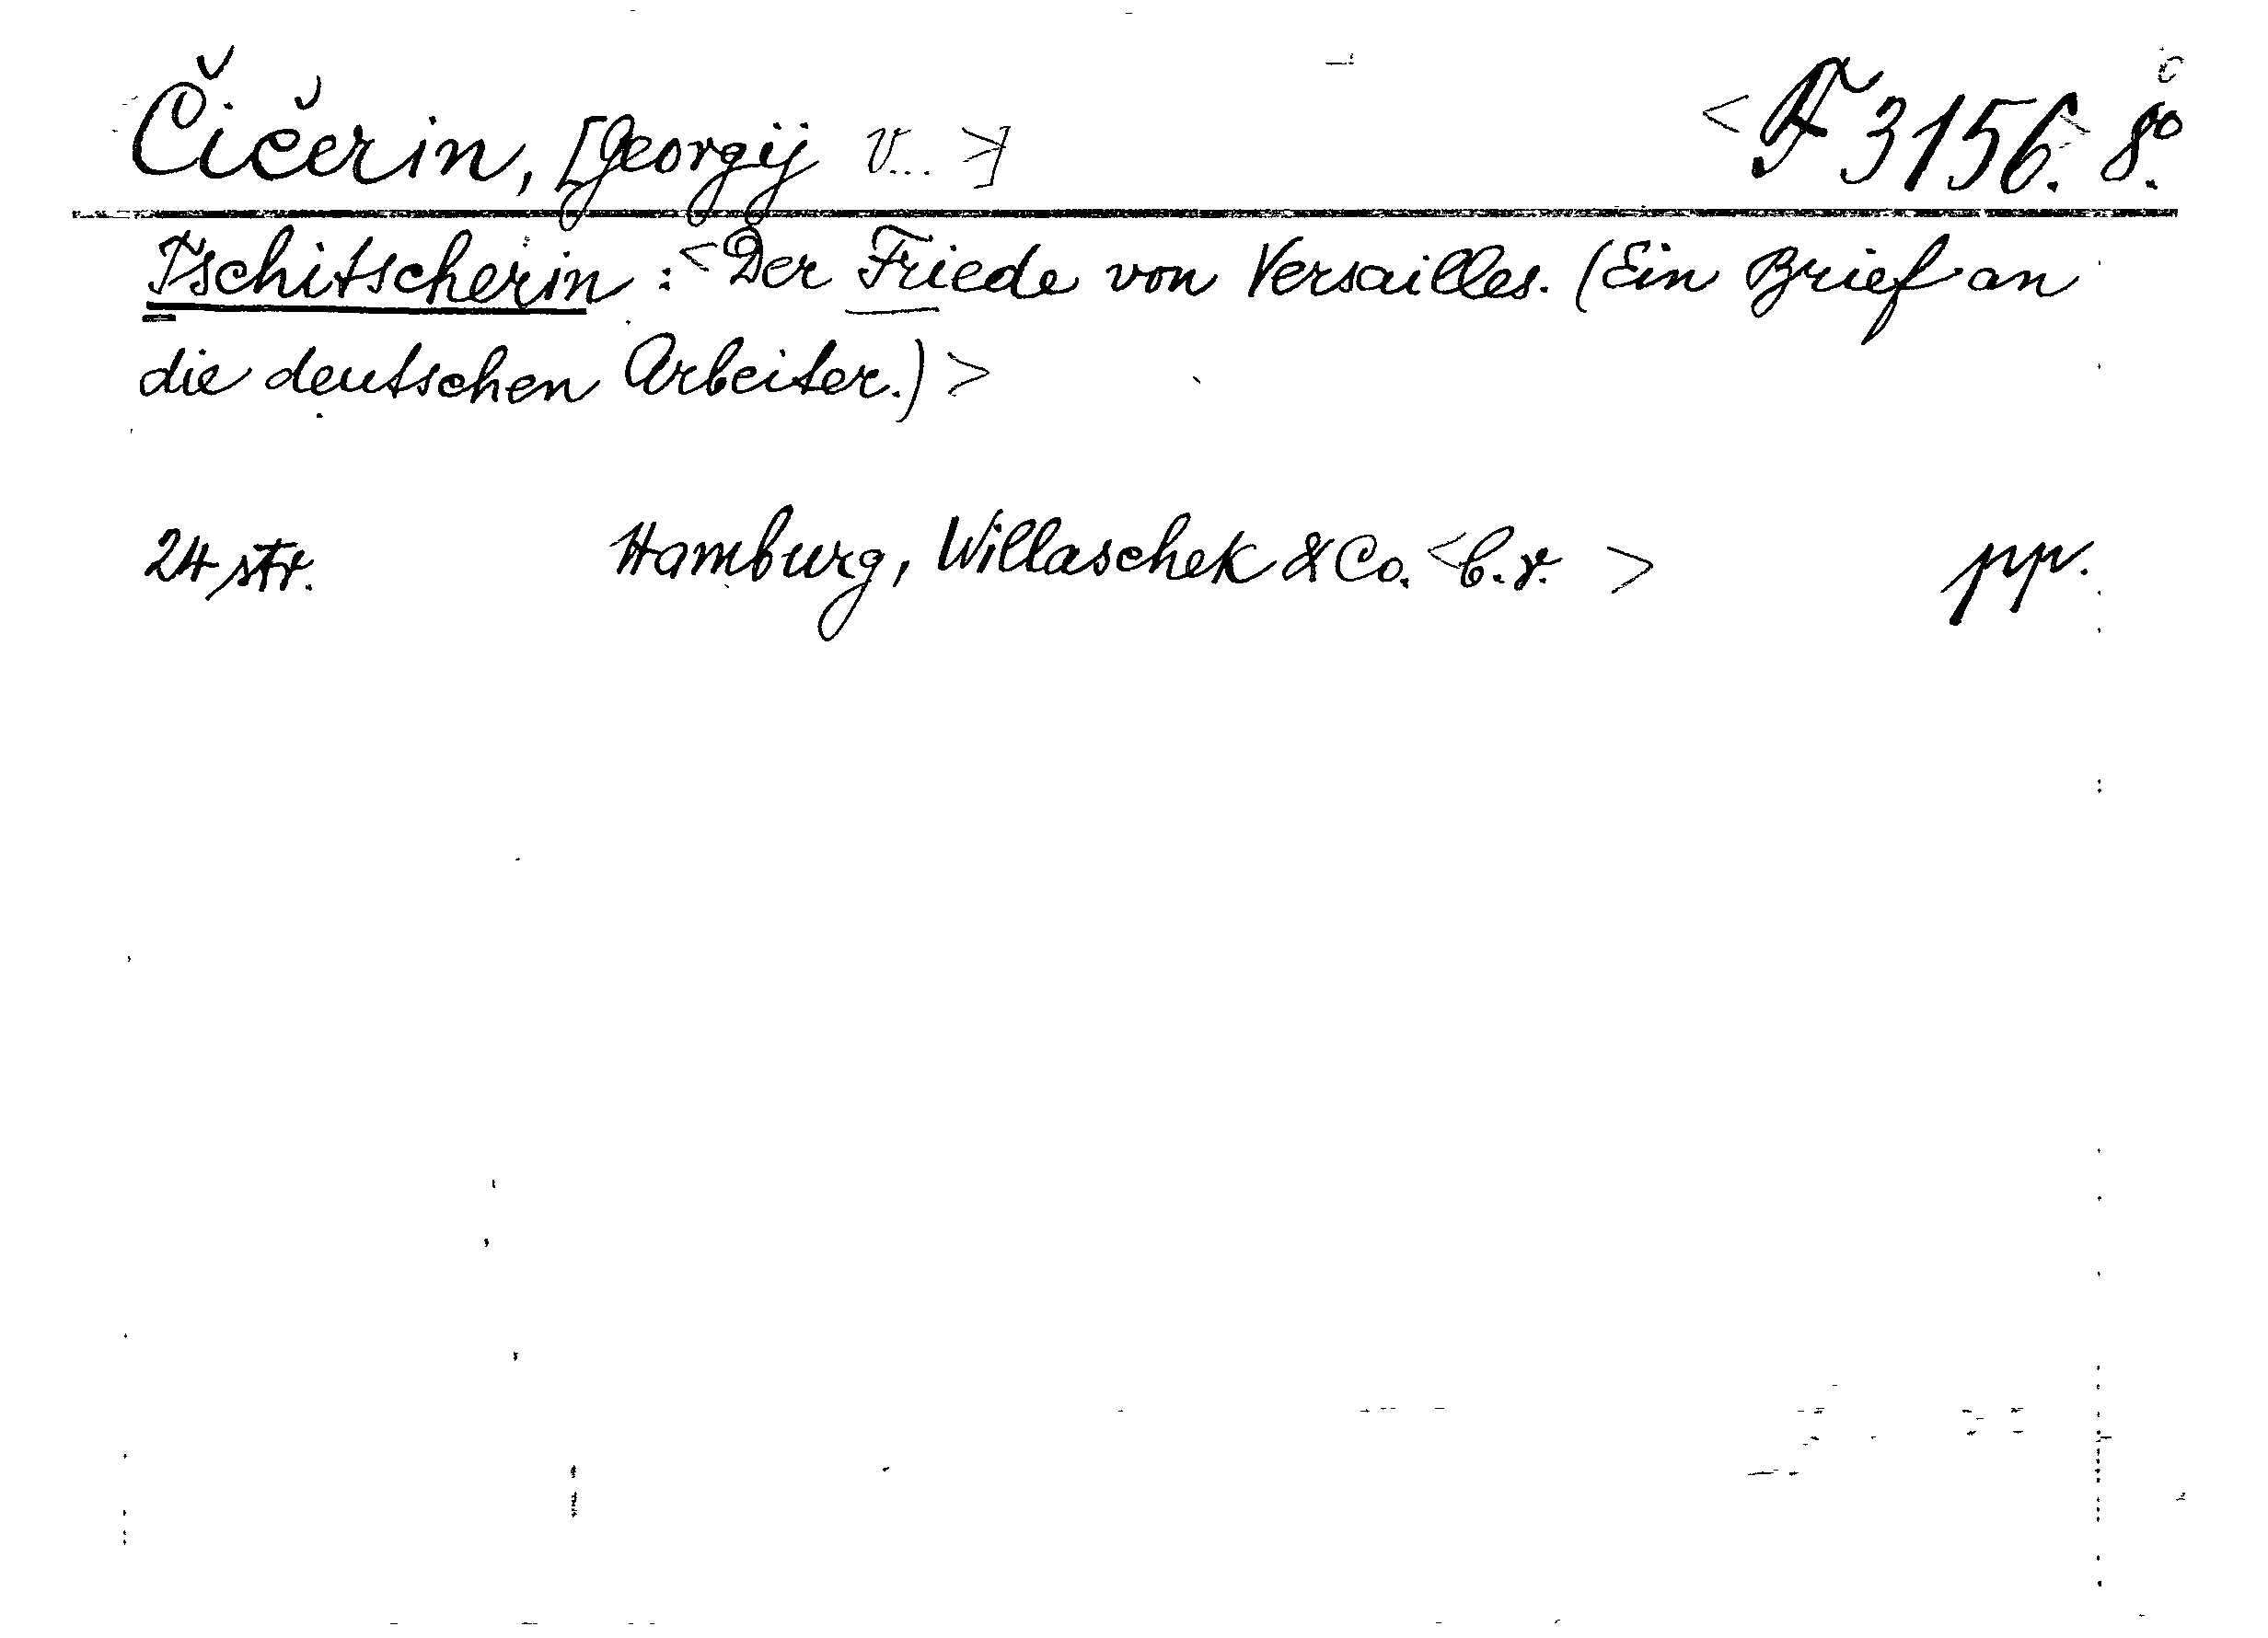 Čičerin, [Georgij V... >] <F 3156.> 8º.
Tschitscherin: <Der Friede von Versailles. (Ein Brief an
die deutschen Arbeiter.)>
24 str. Hamburg, Willaschek & Co. <b.r. > pp.